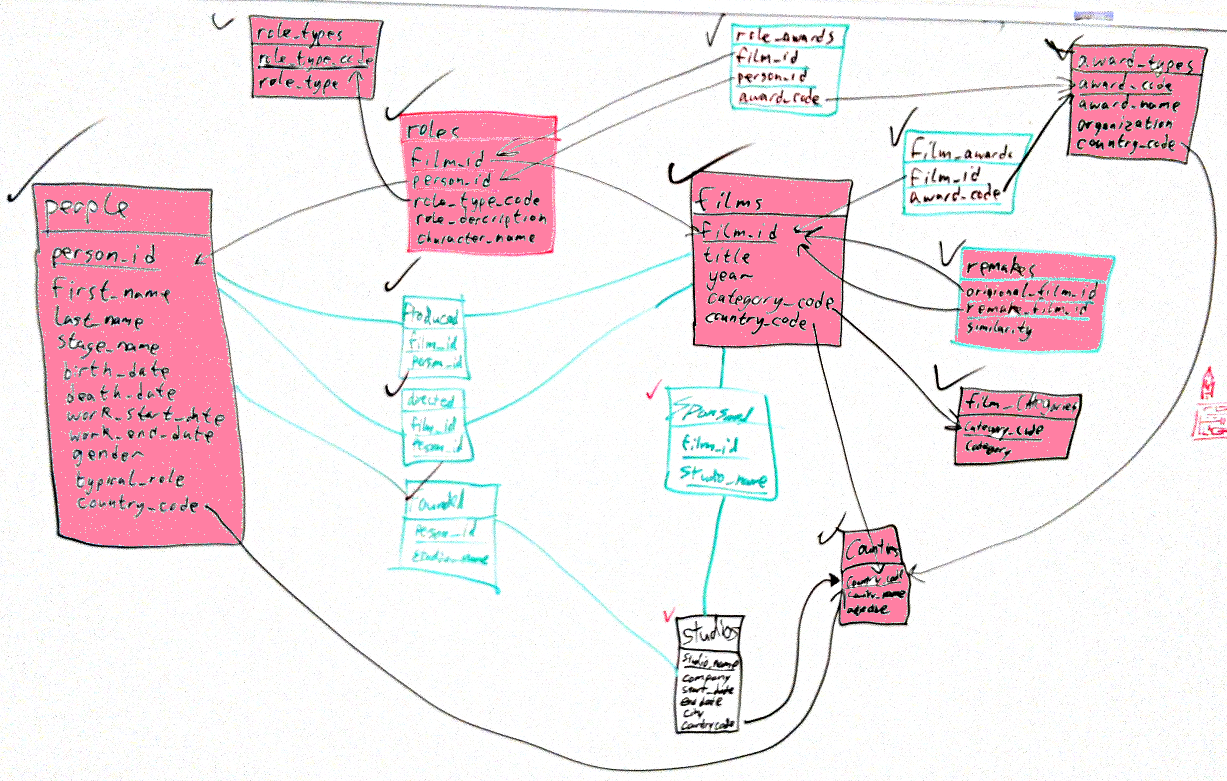 role_types
role_type_code
role_type
role_awards
film_id
person_id
award_code
award_types
award_code
award_name
organization
country_code
roles
film_id
person_id
role_type_code
role_description
character_name
film_awards
film_id
award_code
people
person_id
first_name
last_name
stage_name
birth_date
death_date
work_start_date
work_end_date
gender
typical_role
country_code
films
film_id
title
year
category_code
country_code
remakes
original_film_id
remake_film_id
similarity
produced
film_id
person_id
directed
film_id
person_id
sponsored
film_id
studio_name
film_categories
category_code
category
founded
person_id
studio_name
country_code
country_name
studios
studio_name
company
start_date
end_date
city
country code